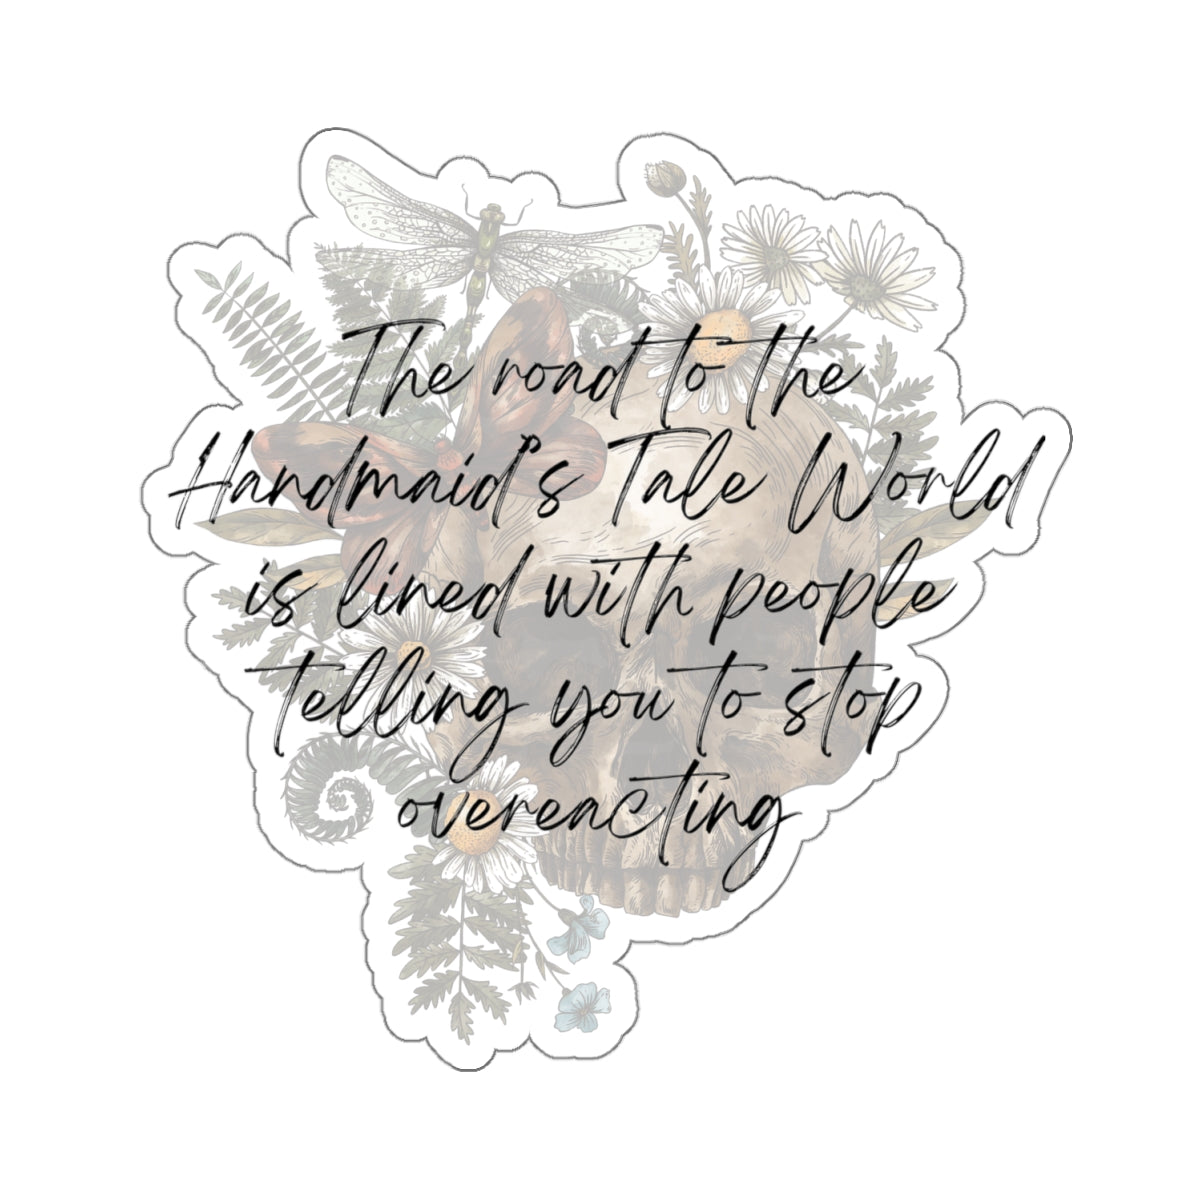 The road to the
Handmaid's Tale World
is lined with people
telling you to stop
overeacting